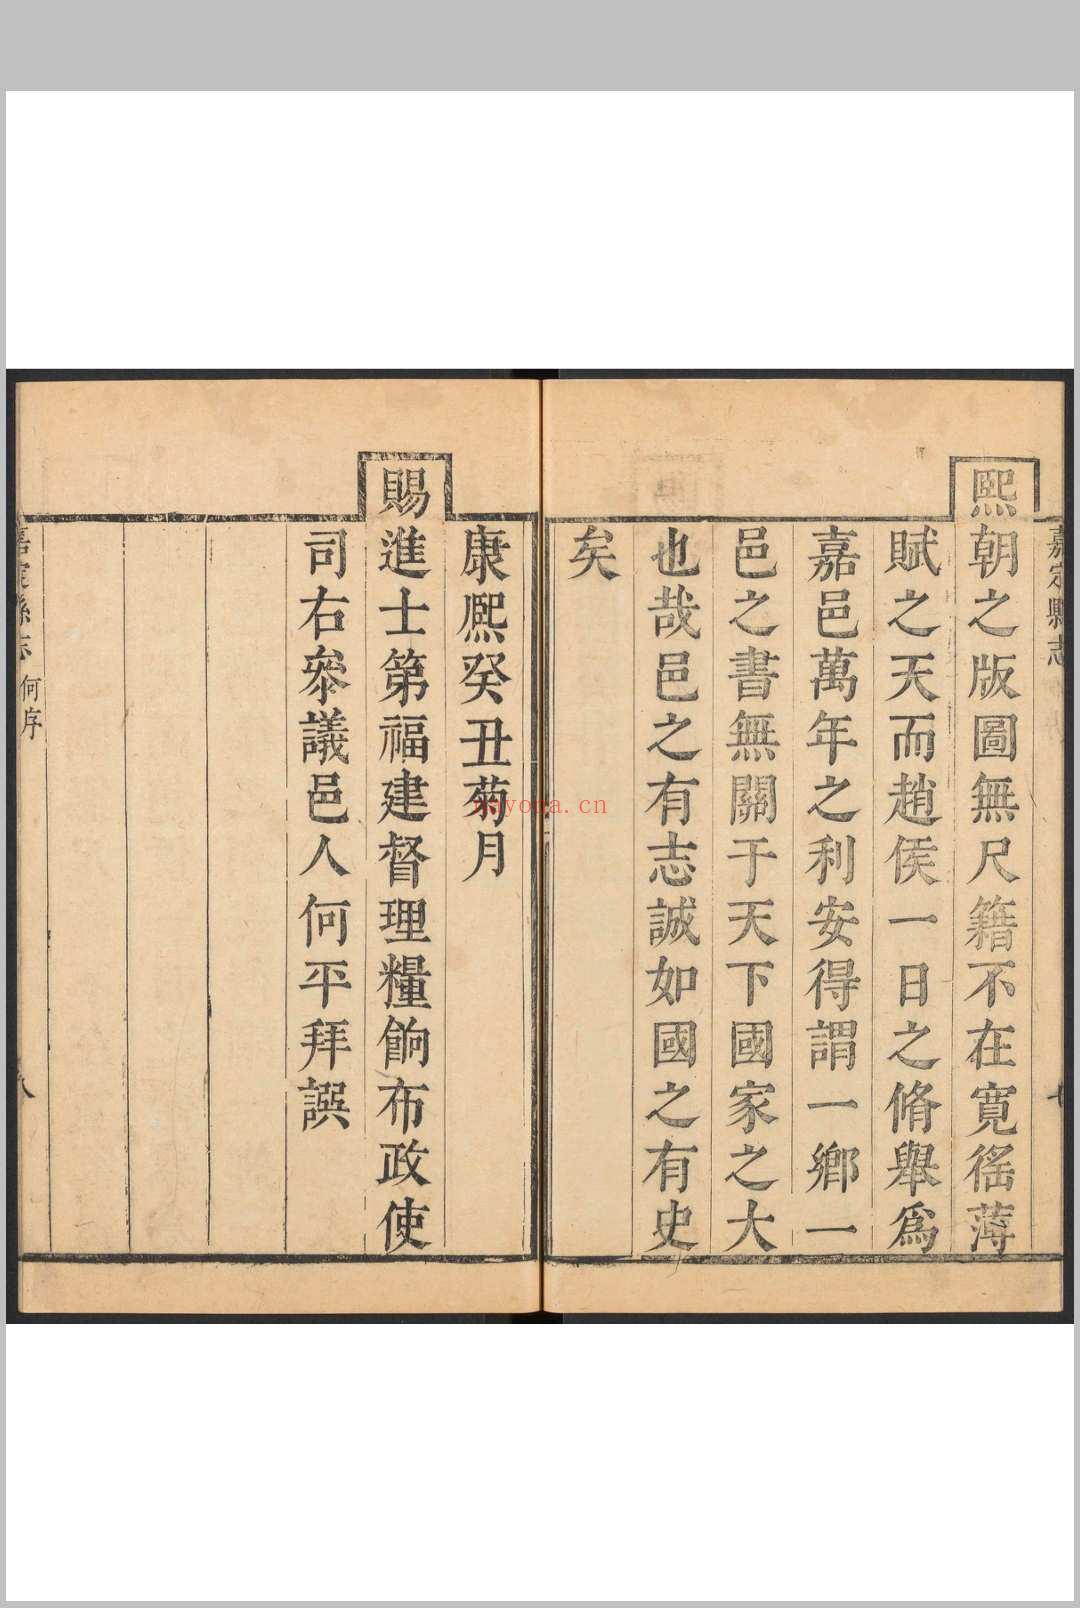 嘉定縣志
熙朝之版圖無尺籍不在寬徭薄
賦之天而趙侯一日之脩舉爲
嘉邑萬年之利安得謂一鄉一
邑之書無關于天下國家之大
也哉邑之有志誠如國之有史
矣
康熈癸丑菊月
賜進士第福建督理糧餉布政使
司右叅議邑人何平拜譔
嘉定縣志 何序 八
nayona.cn